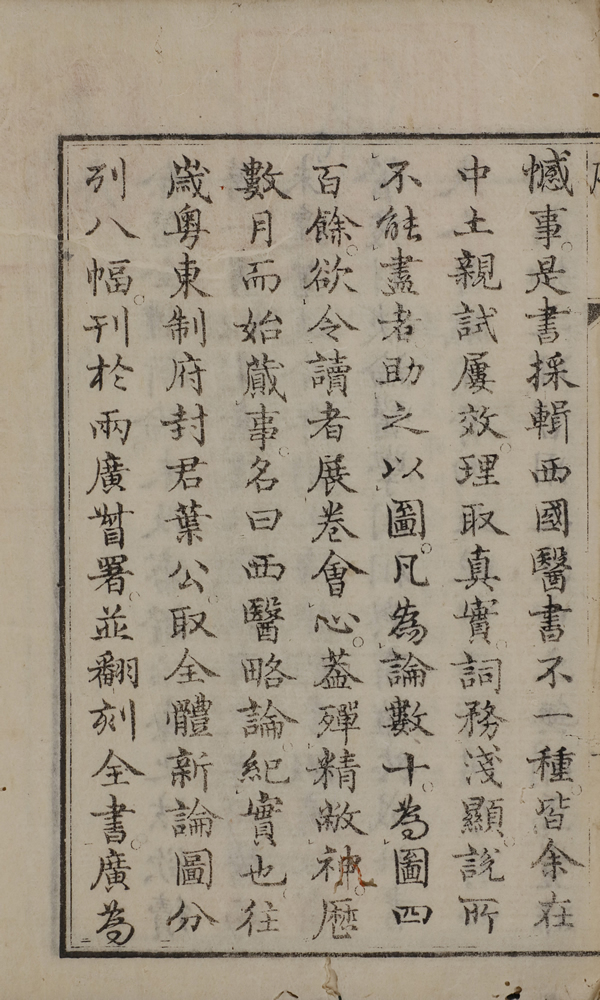 憾事是書採輯西國醫書不一種皆余在
中土親試屢效理取真實詞務淺顯說所
不能盡者助之以圖凡為論數十為圖四
百餘欲令讀者展卷會心葢殫精敝神歷
數月而始蕆事名曰西醫略論紀實也往
歲粵東制府封君葉公取全體新論圖分
列八幅刊於兩廣督署並翻刻全書廣為